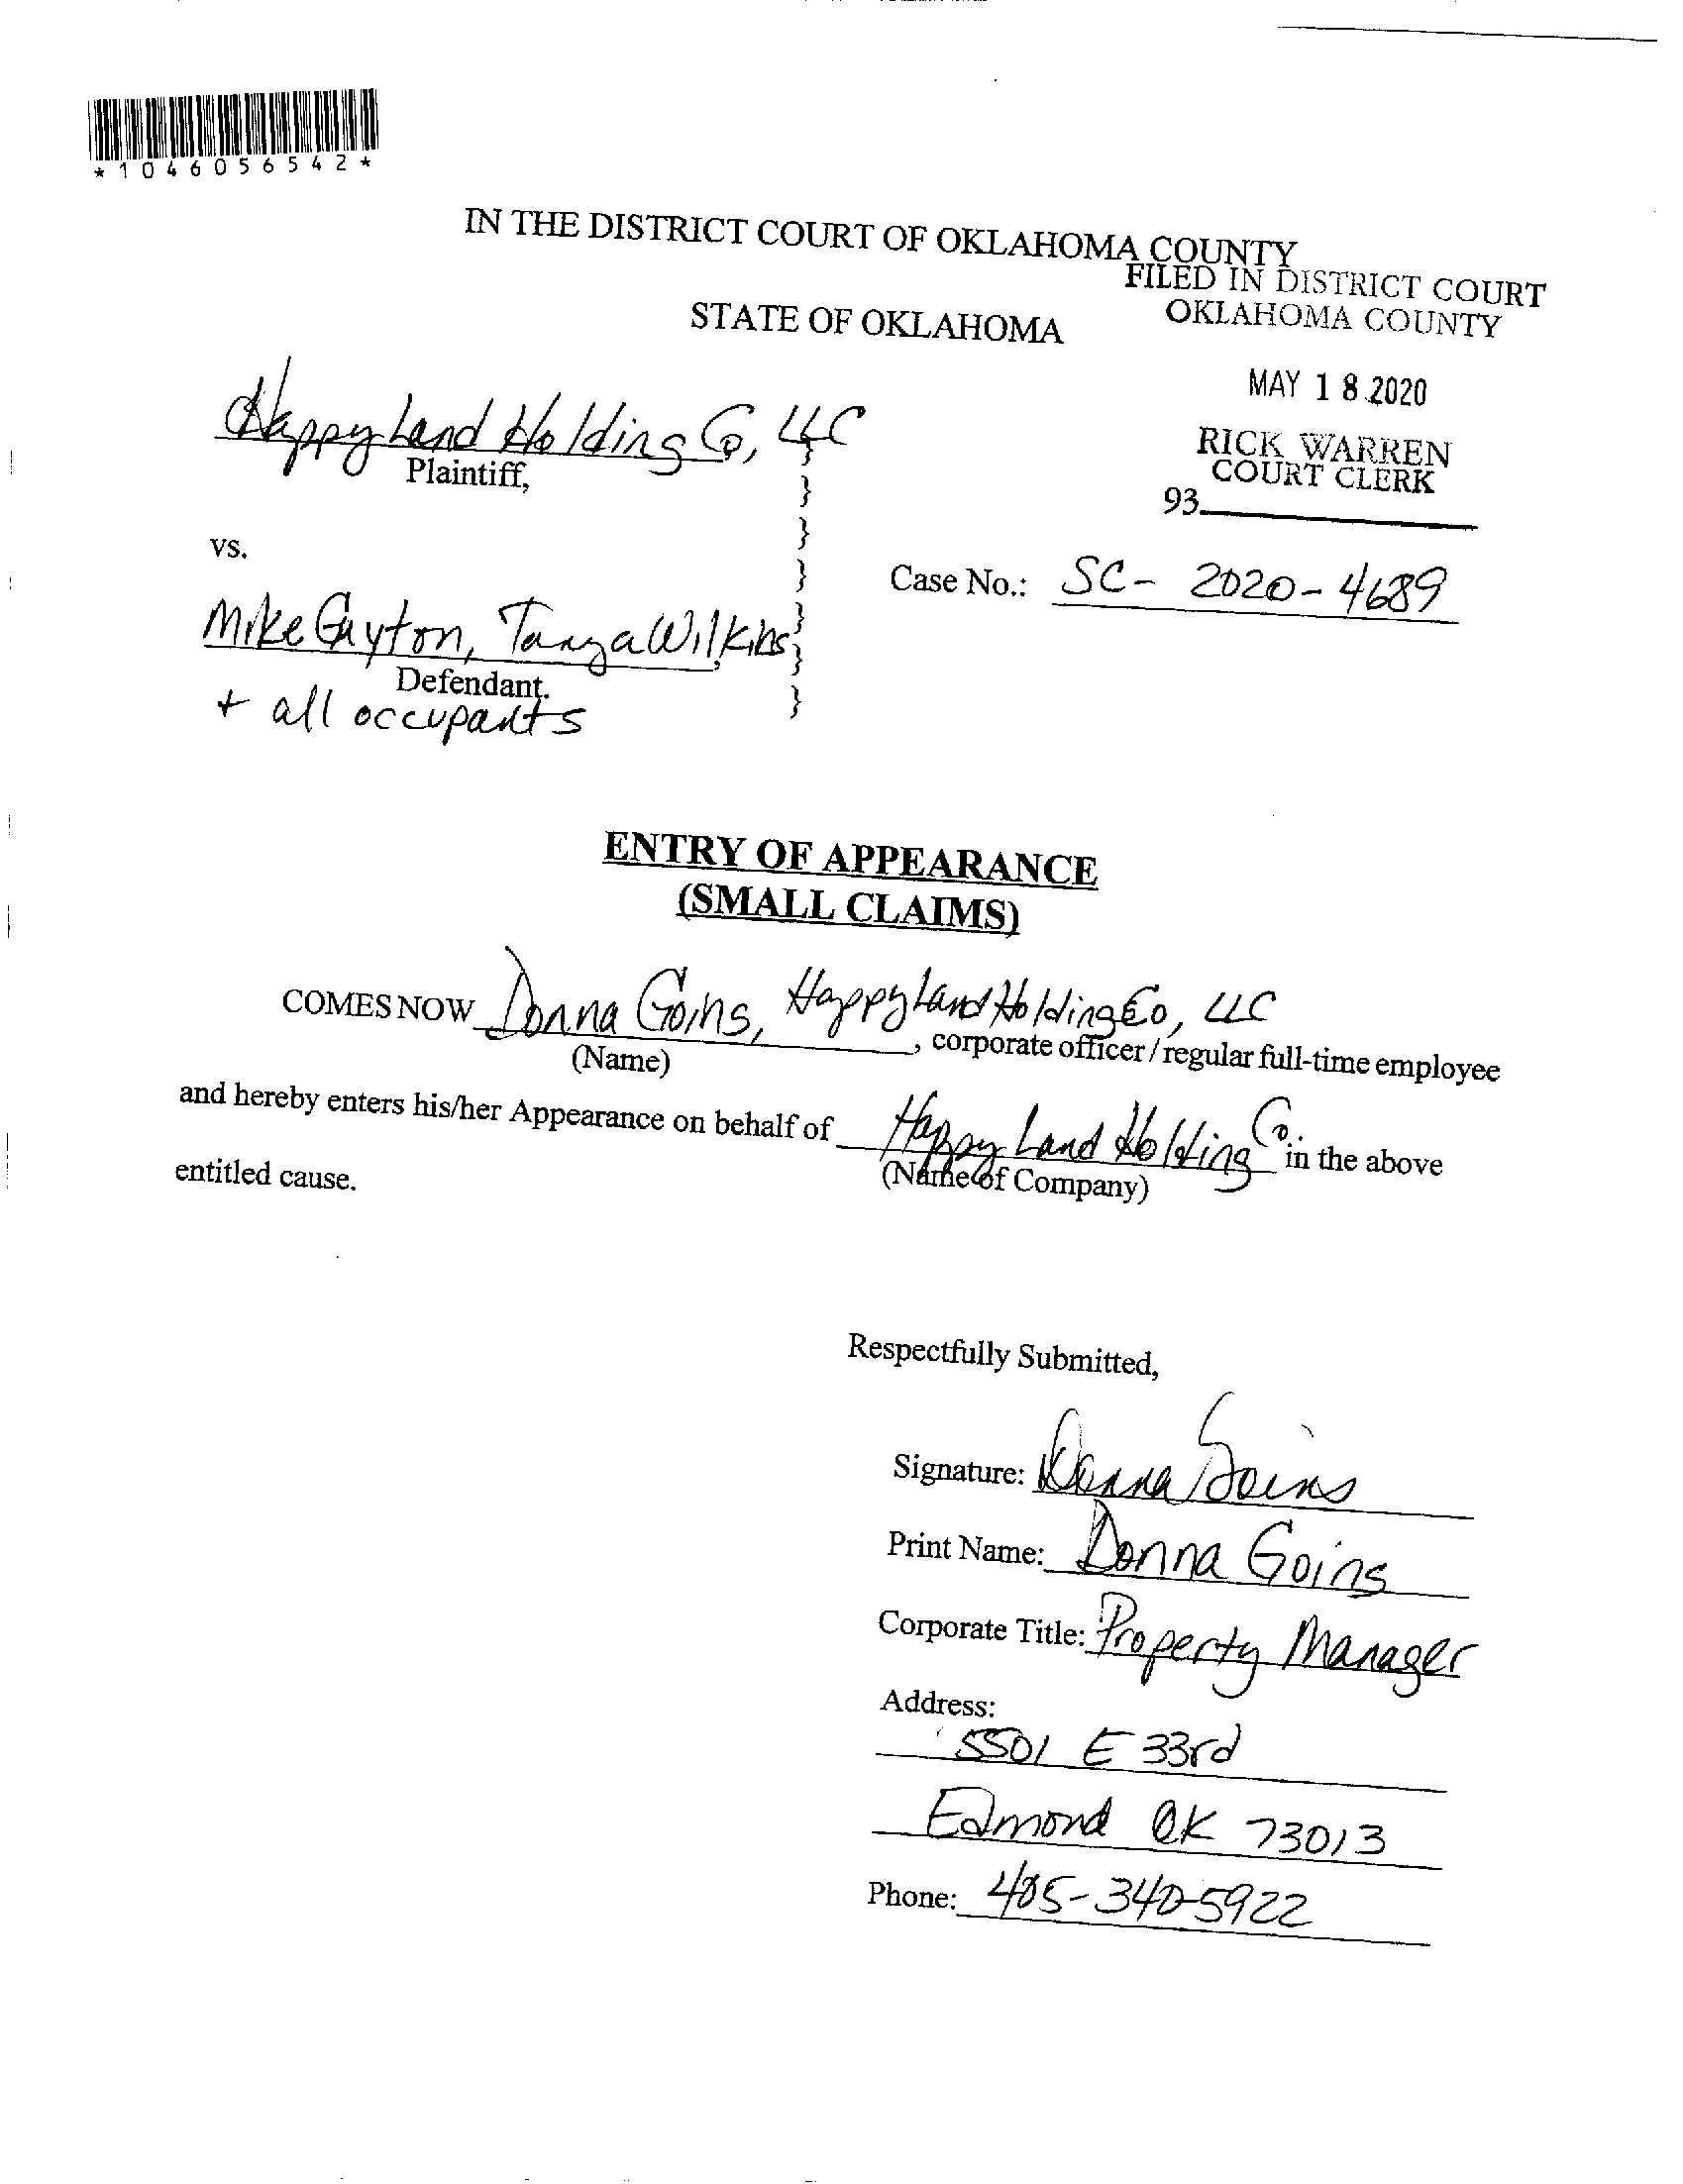 *1046056542*
IN THE DISTRICT COURT OF OKLAHOMA COUNTY
FILED IN DISTRICT COURT
OKLAHOMA COUNTY
STATE OF OKLAHOMA
MAY 18 2020
RICK WARREN
COURT CLERK
93
Happy Land Holding Co, LLC }
Plaintiff, }
}
vs. }
Case No.: SC- 2020-4689
Mike Guyton, Tanya Wilkins }
}
Defendant. }
+ all occupants
ENTRY OF APPEARANCE
(SMALL CLAIMS)
COMES NOW Donna Goins, Happy Land Holding Co, LLC, corporate officer / regular full-time employee
(Name)
and hereby enters his/her Appearance on behalf of Happy Land Holding Co. in the above
(Name of Company)
entitled cause.
Respectfully Submitted,
Signature: Donna Goins
Print Name: Donna Goins
Corporate Title: Property Manager
Address:
5501 E 33rd
Edmond OK 73013
Phone: 405-340-5922